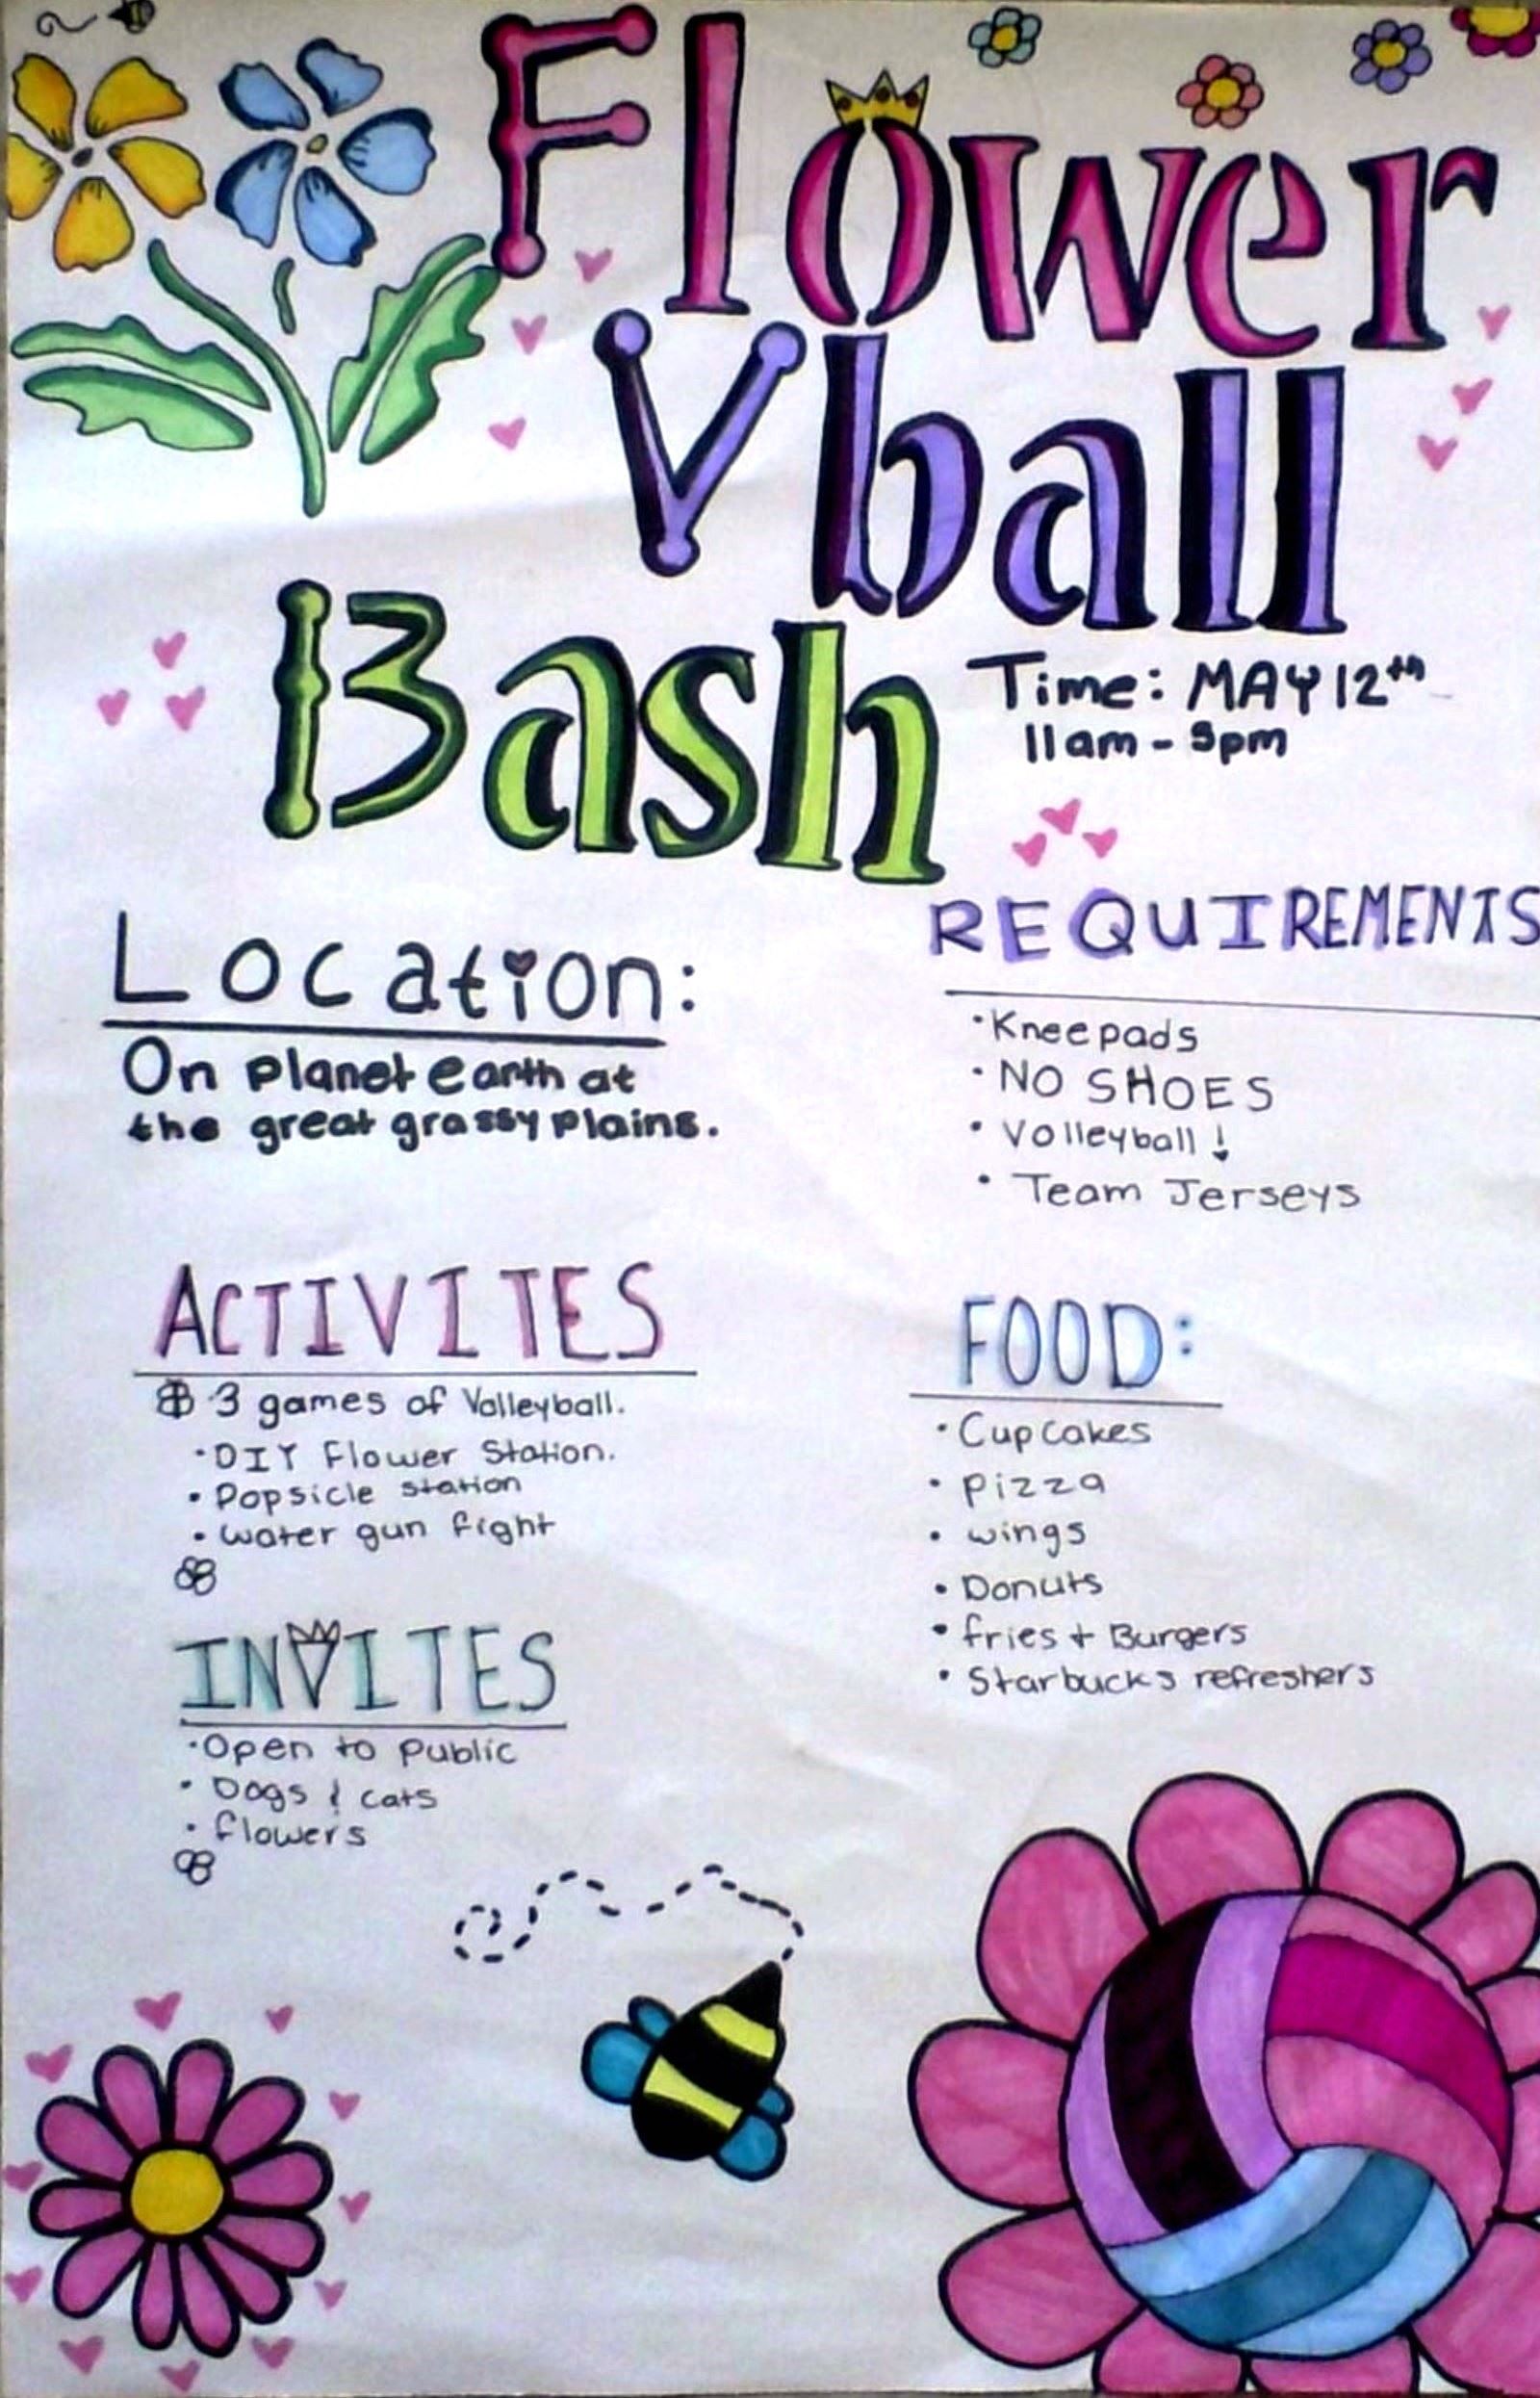 Flower
Vball
Bash
Time: MAY 12th
11am - 5pm
Location:
On planet earth at
the great grassy plains.
REQUIREMENTS
• Kneepads
• NO SHOES
• Volleyball!
• Team Jerseys
ACTIVITES
• 3 games of Volleyball.
• DIY Flower Station.
• Popsicle station
• water gun fight
FOOD:
• Cupcakes
• pizza
• wings
• Donuts
• fries + Burgers
• Starbucks refreshers
INVITES
• Open to public
• Dogs & cats
• flowers